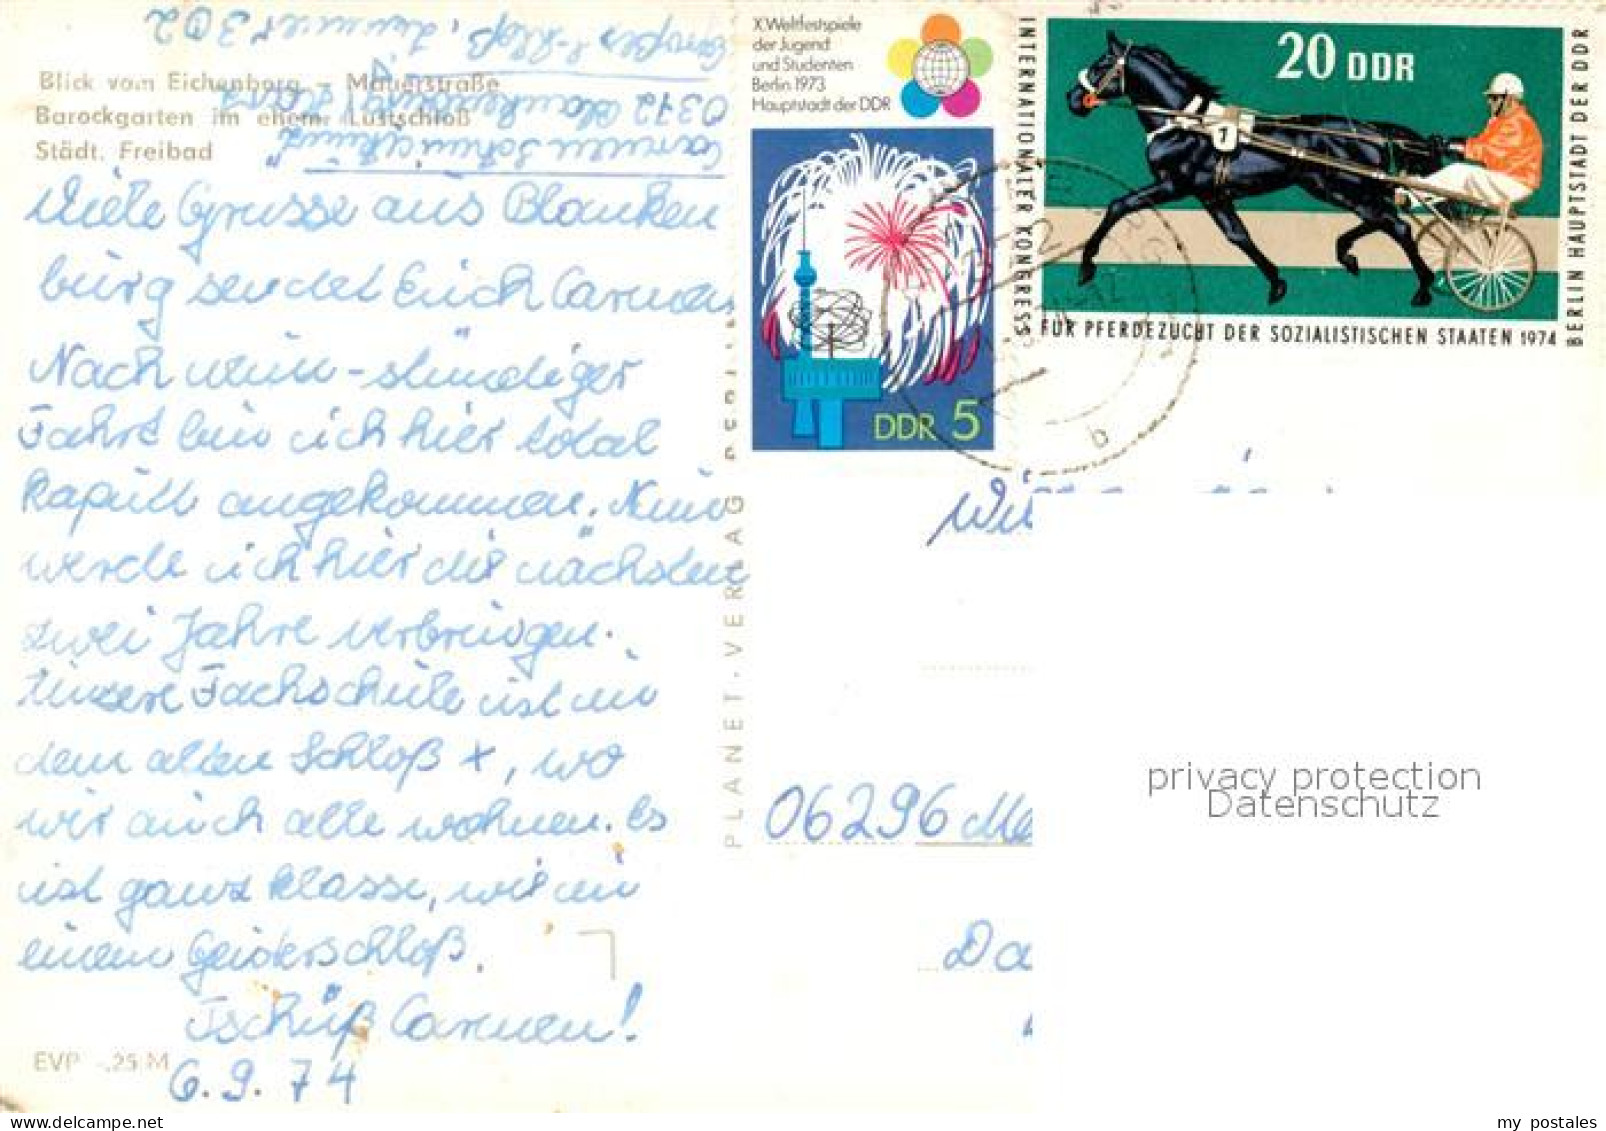 Blick vom Eichenberg – Mauerstraße
Barockgarten im ehem. Lustschloß
Städt. Freibad
0372
Großes Schloß, Zimmer 302
Viele Grüsse aus Blanken
burg sendet Euch Carmen
Nach neun-stündiger
Fahrt bin ich hier total
kaputt angekommen. Nun
werde ich hier die nächsten
zwei Jahre verbringen.
Unsere Fachschule ist in
dem alten Schloß x, wo
wir auch alle wohnen. Es
ist ganz klasse, wie in
einem Geisterschloß.
Tschüß Carmen!
6.9.74
EVP -,25 M
PLANET-VERLAG
X. Weltfestspiele
der Jugend
und Studenten
Berlin 1973
Hauptstadt der DDR
DDR 5
INTERNATIONALER KONGRESS
FÜR PFERDEZUCHT DER SOZIALISTISCHEN STAATEN 1974
BERLIN HAUPTSTADT DER DDR
20 DDR
1
b
06296 Me
Da
privacy protection
Datenschutz
my postales